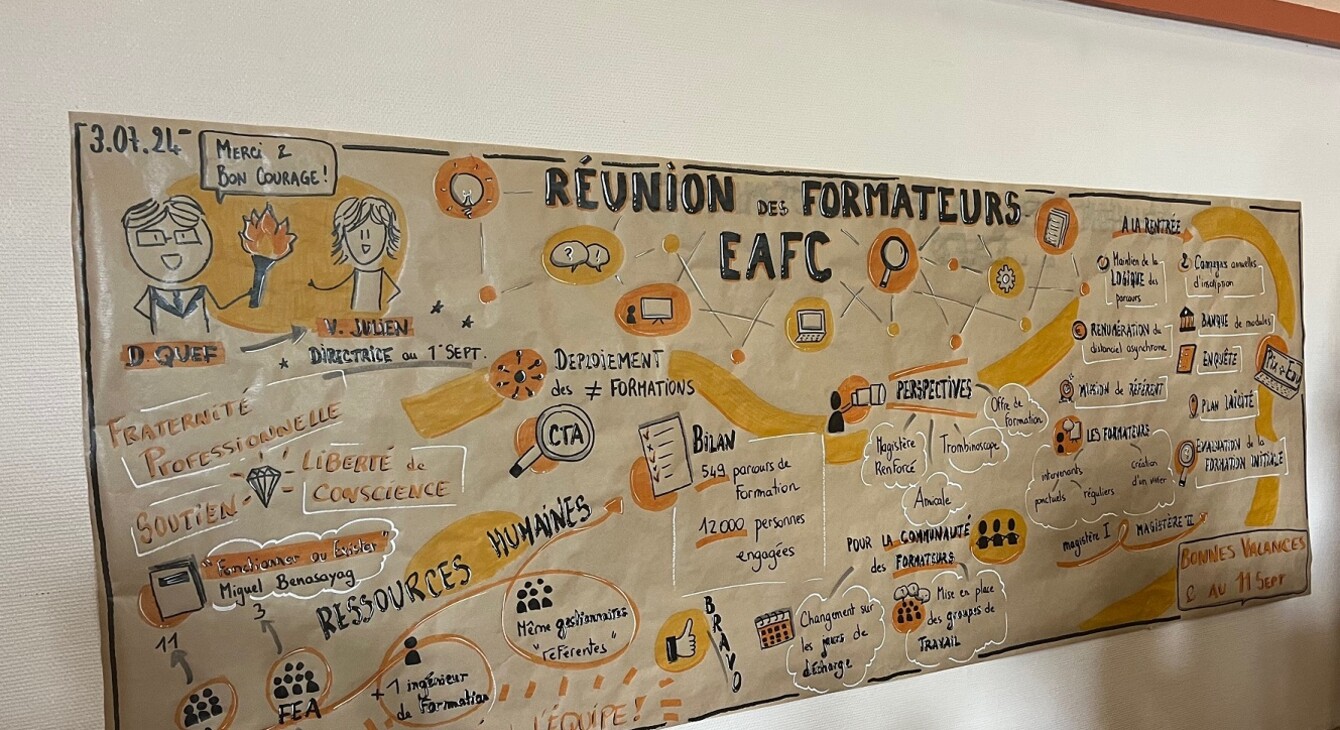 3.07.24
MERCI &
BON COURAGE!
D. QUEF
V. JULIEN
DIRECTRICE au 1er SEPT.
RÉUNION DES FORMATEURS
EAFC
FRATERNITÉ
PROFESSIONNELLE
SOUTIEN
LIBERTÉ de
CONSCIENCE
"Fonctionner ou Exister"
Miguel Benasayag
11
3
FEA
RESSOURCES HUMAINES
+1 ingénieur
de Formation
Même gestionnaires
"référentes"
L'ÉQUIPE!
BRAVO
DEPLOIEMENT
des ≠ FORMATIONS
CTA
BILAN
549 parcours de
Formation
12000 personnes
engagées
PERSPECTIVES
Magistère
Renforcé
Amicale
Trombinoscope
Offre de
formation
POUR LA COMMUNAUTÉ
des FORMATEURS
Changement sur
les jours de
décharge
Mise en place
des groupes de
TRAVAIL
A LA RENTRÉE
Maintien de la
LOGIQUE des
parcours
RENUMÉRATION du
distanciel asynchrone
MISSION de RÉFÉRENT
LES FORMATEURS
intervenants
ponctuels
réguliers
création
d'un vivier
magistère I
MAGISTÈRE II
2 Campagnes annuelles
d'inscription
BANQUE de modules
ENQUÊTE
Pix+Edu
PLAN LAÏCITÉ
EVALUATION de la
FORMATION INITIALE
BONNES VACANCES
& AU 11 SEPT